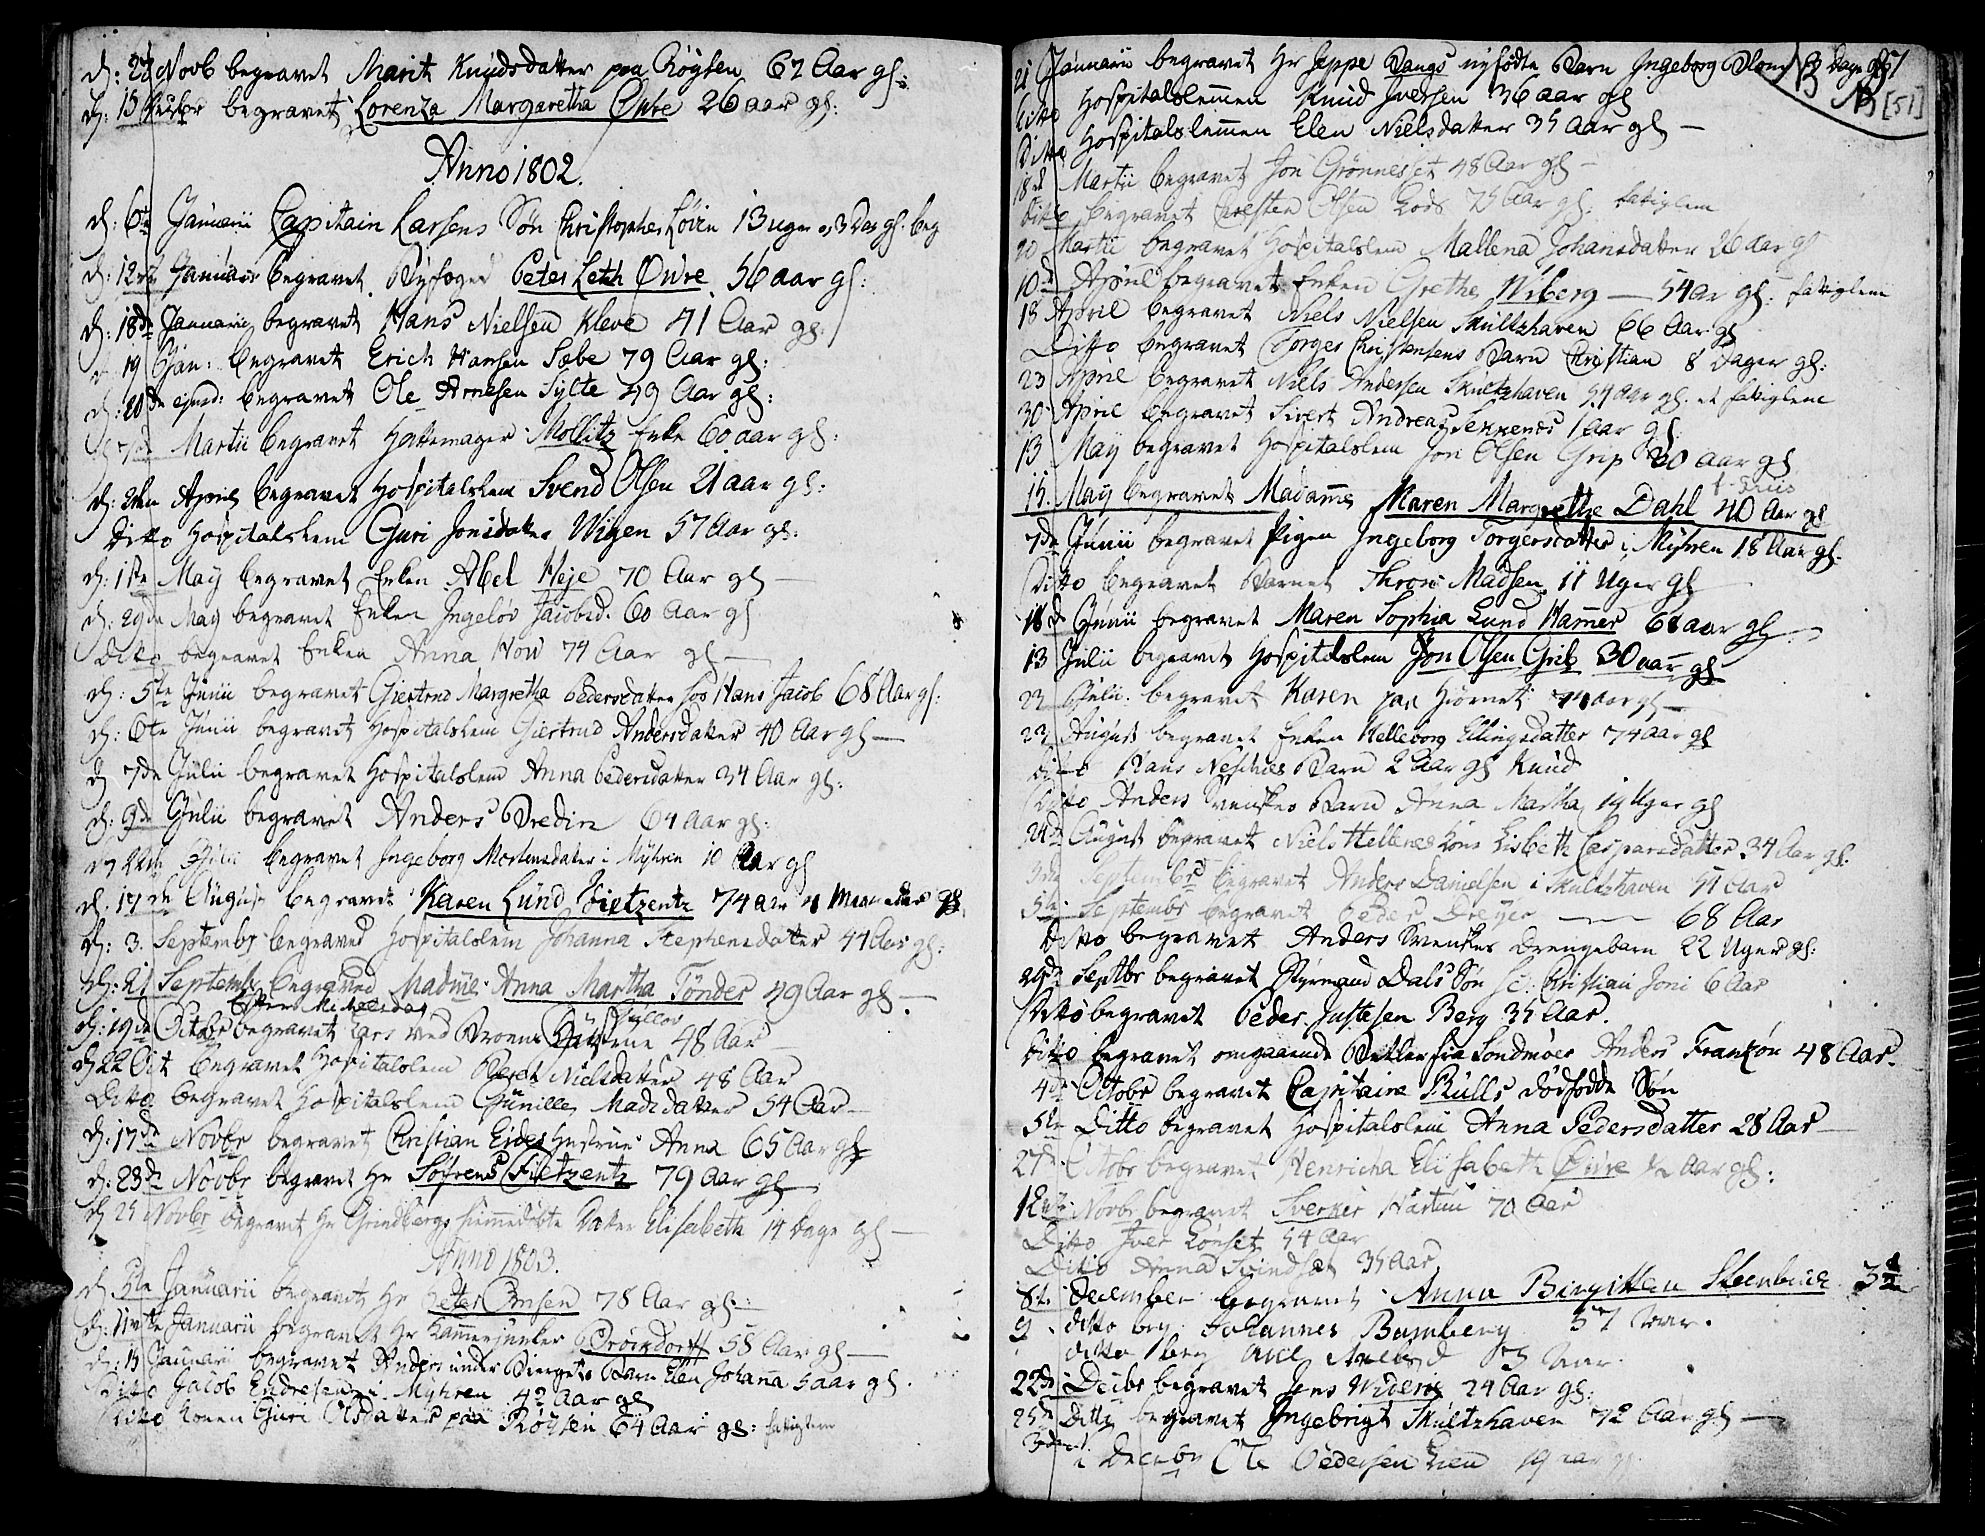 d: 27 Novb begravet Marit Knudsdatter paa Røysen 62 Aar gl:
d: 15 begravet Lorenza Margaretha Owre 26 aar gl:
Anno 1802.
d: 6te Januarii Capitain Larsens Søn Christopher 13 uger 3 Dag gl. beg
d: 12te Januar begravet Byfoged Peter Leth Øwre 56 aar gl:
d: 18de Januarii begravet Hans Nielsen Kleve 41 Aar gl:
d 19 Jan: begravet Erich Hansen Sæbe 79 Aar gl:
d: 20de ejusd: begravet Ole Arnesen Sylte 49 Aar gl:
d 7de Martii begravet Hattemager Mollitz Enke 60 aar gl:
d: 2den April begravet Hospitalslem Svend Olsen 21 aar gl:
Ditto Hospitalslem Guri Jonsdatter Wigen 57 Aar gl:
d: 1ste May begravet Enken Abel Heje 70 Aar gl —
d: 29de May begravet Enken Ingeløv Jacobsd. 60 Aar gl
Ditto begravet Enken Anna How 74 Aar gl —
d: 5te Junii begravet Giertrud Margretha Pedersdatter hos Hans Jacob 68 Aar gl:
d: 6te Junii begravet Hospitalslem Giertrud Andersdatter 40 Aar gl —
d 7de Julii begravet Hospitalslem Anna Pedersdatter 34 Aar gl:
d: 9de Julii begravet Anders Bredin 64 Aar gl:
Julii begravet Ingeborg Mortensdatter i Myhren 10 Aar gl
d. 17de August begravet Karen Lund Fietzentz 74 Aar 4 Maaneder gl.
d: 3. Septembr begraved Hospitalslem Johanna Stephensdatter 44 Aar gl:
d: 21 Septembr begraved Madme Anna Martha Tønder 49 Aar gl —
d: 19de Octobr begravet Lars ved Broen 48 Aar
d 22 Oct begravet Hospitalslem Beret Nielsdatter 48 Aar
Ditto begravet Hospitalslem Gunille Madsdatter 54 Aar —
d: 17de Novbr begravet Christian Eides Hustrue Anna 65 Aar gl
d: 23de Novbr begravet Hr Søfrens Fietzentz 79 Aar gl
d 25 Novbr begravet Hr Grindbergs hiemmedøbte Datter Elisabeth 14 Dage gl —
Anno 1803.
d 5te Januarii begravet Hr Peter Jensen 78 Aar gl: —
d: 11te Januarii begravet Hr Kammerjunker Brøndorff 58 Aar gl —
d: 13 Januarii begravet Anders under Bierget Barn Elen Johanna 5 aar gl.
Ditto Jacob Endresen i Myhren 42 Aar gl
Ditto Konen Guri Olsdatter paa Røysen 64 Aar gl: fattiglem
21 Januarii begravet Hr Jeppe Bangs nyfødte Barn Ingeborg 3 Dage gl
51
[51]
Ditto Hospitalslemmen Knud Iversen 36 aar gl
Ditto Hospitalslemmen Elen Nielsdatter 35 Aar gl —
18de Martii begravet Jon Grønneset 48 Aar gl —
Ditto begravet Christen Olsen Gods 75 Aar gl. fattiglem
20 Martii begravet Hospitalslem Mallena Johansdatter 26 aar gl
10de April begravet Enken Grethe Wiberg — 54 ar gl: fattiglem
18 April begravet Niels Nielsen Skultzhaven 66 Aar gl
Ditto begravet Torges Christensens Barn Christian 8 Dager gl:
23 April begravet Niels Andersen Skultzhaven 54 aar gl. et fattiglem
30 April begravet Sivert Andreas 1 aar gl
13 May begravet Hospitalslem Jon Olsen Grip 20 aar gl
15. May begravet Madame Maren Margrethe Dahl 40 Aar gl
7de Junii begravet Pigen Ingeborg Torgersdatter i Myhren 18 Aar gl.
Ditto begravet Barnet Madsen 11 Uger gl
18de Junii begravet Maren Sophia Lund Hamer 68 aar gl
13 Julii begravet Hospitalslem Jon Olsen Grib 30 aar gl
22 Julii begravet Karen paa Hiørnet 74 aar gl —
22 August begravet Enken Kelleborg Ellingsdatter 74 Aar gl
Ditto Hans Barn 2 Aar gl Knud
Ditto Anders Svenskes Barn Anna Martha 19 Uger gl
24de August begravet Niels Hellenes kone Lisbeth Caspersdatter 34 Aar gl:
3de Septembr begravet Anders Danielsen i Skultzhaven 51 Aar
5te Septembr begravet Peder Dreyer — 68 Aar
Ditto begravet Anders Svenskes Drengebarn 22 Uger gl:
29de Septbr begravet Styrmand Dals Søn Christian Joni 6 Aar
Ditto begravet Peder Justesen Berg 35 Aar.
Ditto begravet omgaaende Betler fra Sondmøer Anders Franzøn 48 Aar.
4de Octobr begravet Capitaine Bulls dødfødde Søn
5te Ditto begravet Hospitalslem Anna Pedersdatter 28 Aar —
27de Octobr begravet Henricha Elisabeth Øwre Aar gl:
12te Novbr begravet Sverker Hastuu 70 Aar
Ditto Iver Lønset 54 Aar
Ditto Anna Svindset 35 Aar
8te December begravet Anna Birgitten Steenbuch 3
9 ditto beg Johannes Bamberg 57 Aar.
ditto beg 73 Aar.
22de Decbr begravet Jens Widerøe 24 Aar gl:
25de Ditto begravet Ingebrigt Skultzhaven 72 Aar gl —
i Decebr Ole Pedersen Lien 19 aar gl